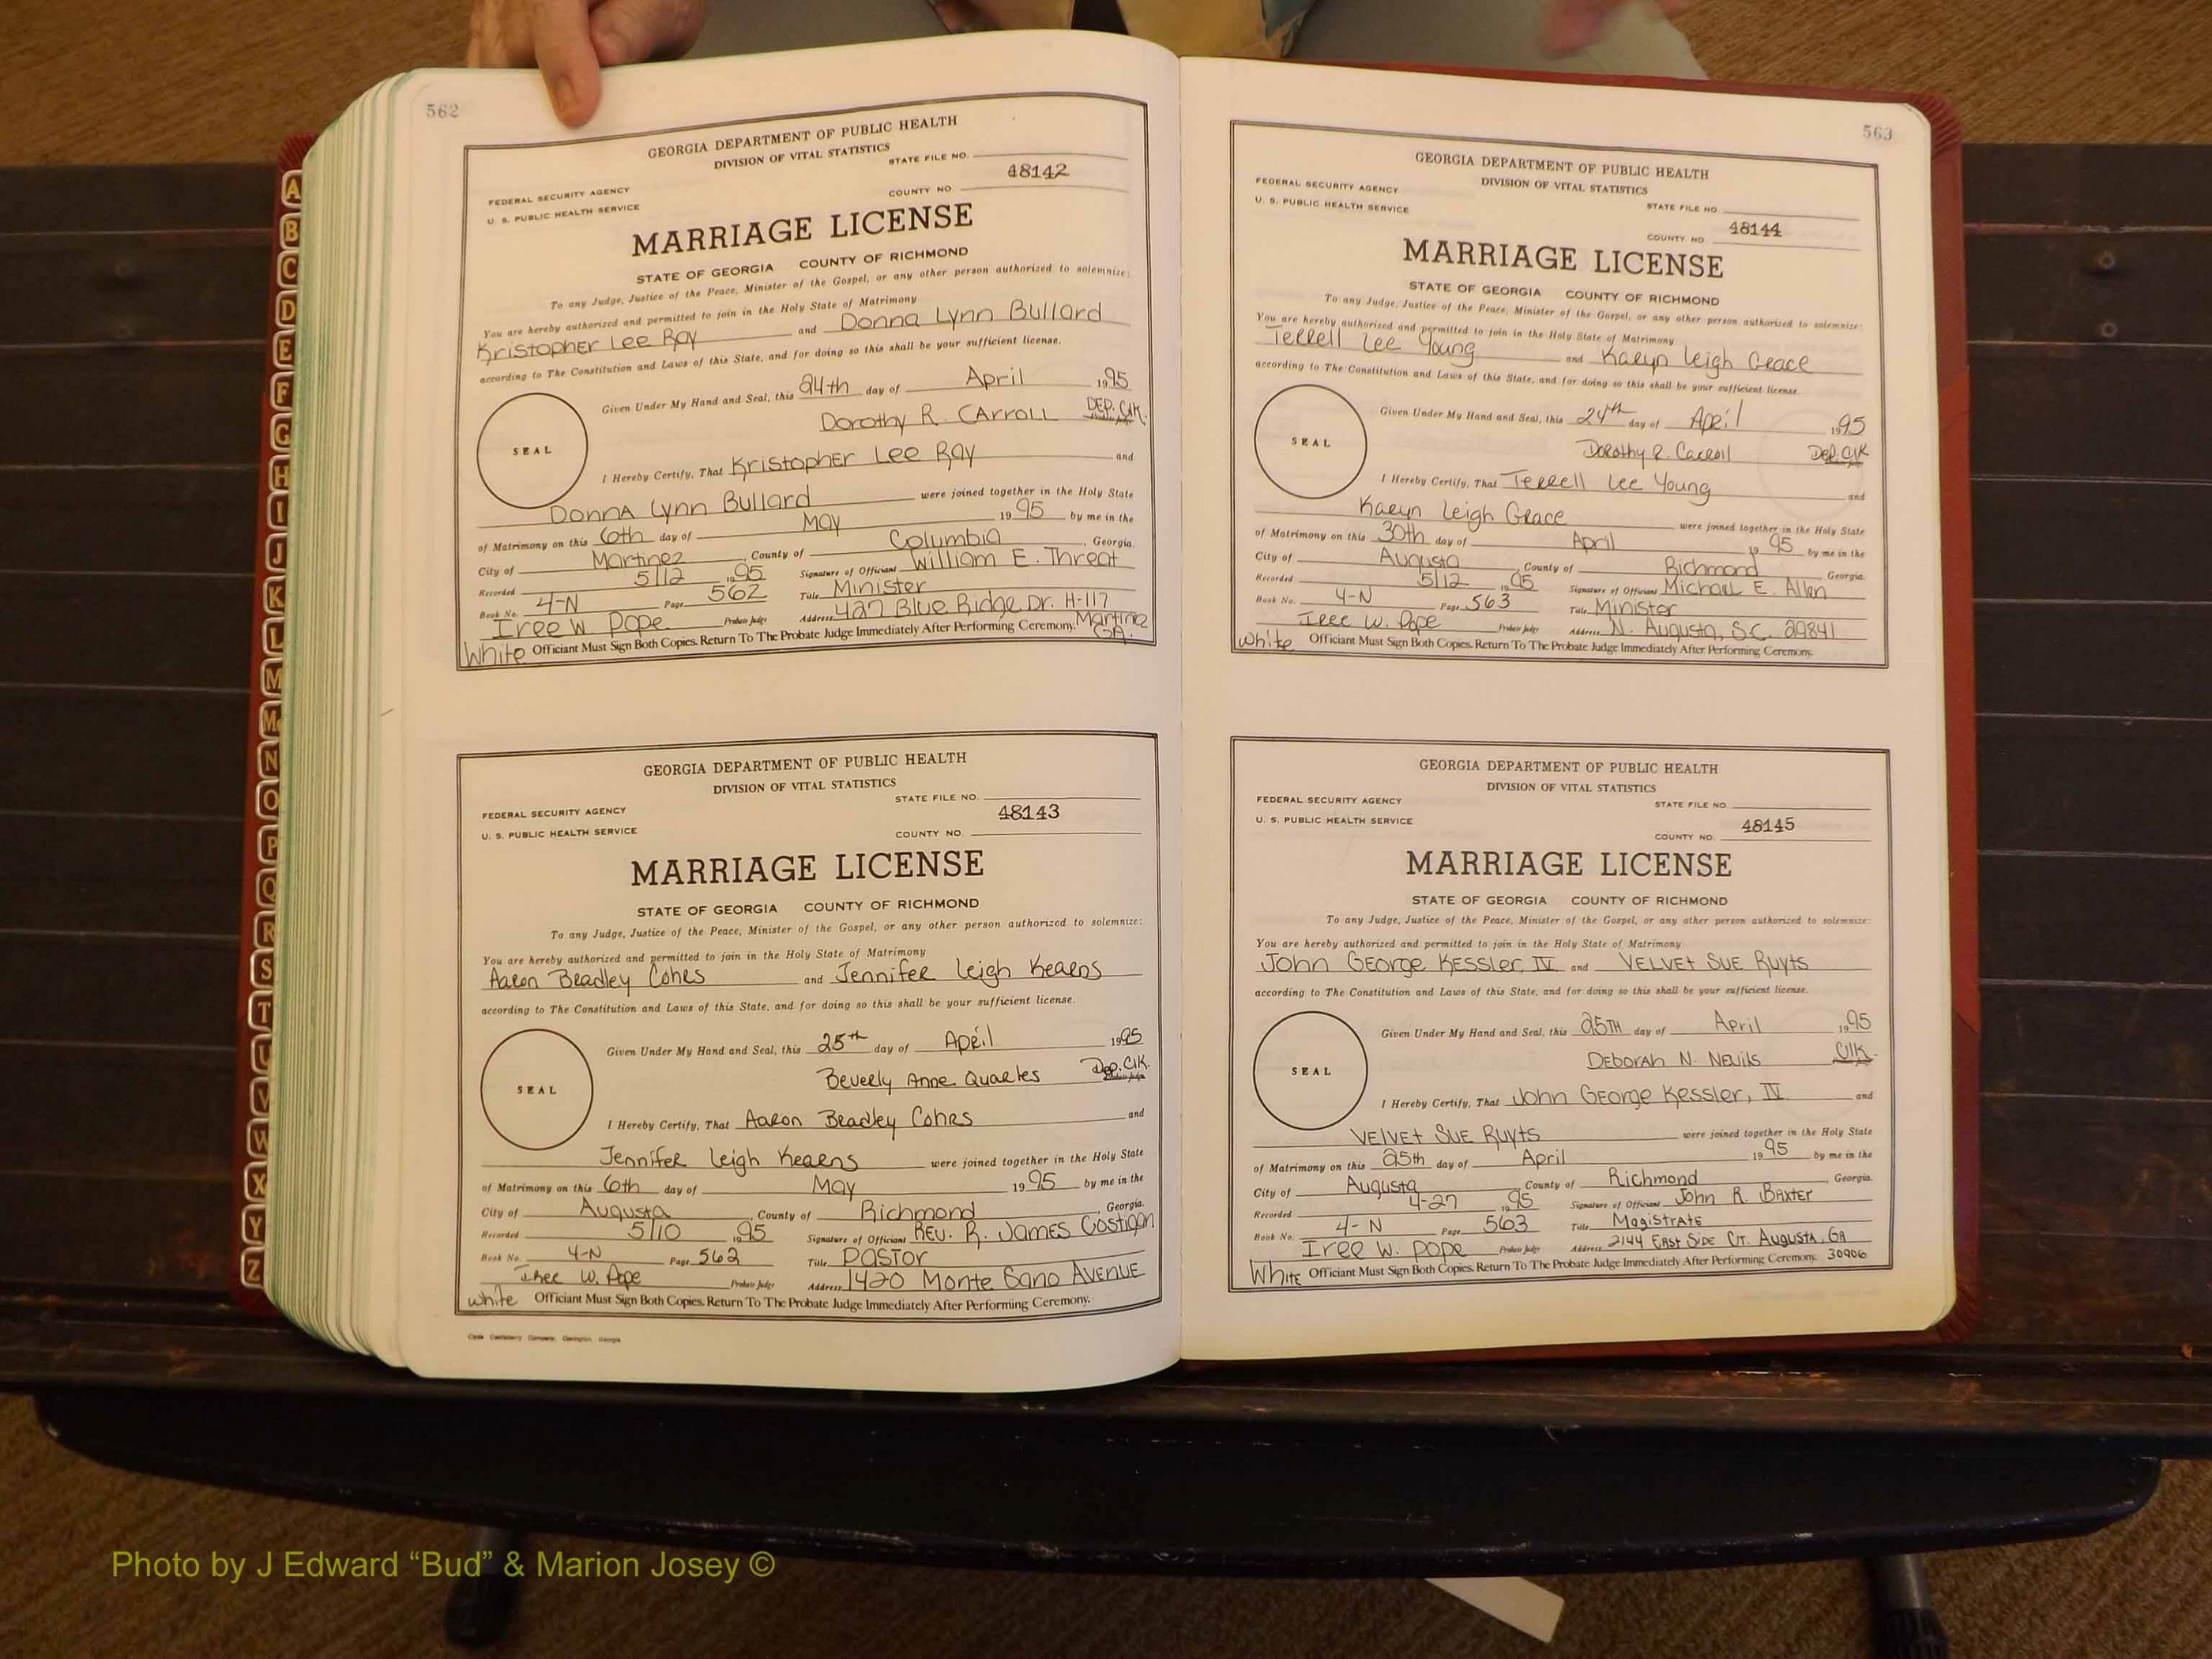 562
GEORGIA DEPARTMENT OF PUBLIC HEALTH
DIVISION OF VITAL STATISTICS
STATE FILE NO.
48142
FEDERAL SECURITY AGENCY
COUNTY NO.
U. S. PUBLIC HEALTH SERVICE
MARRIAGE LICENSE
STATE OF GEORGIA COUNTY OF RICHMOND
To any Judge, Justice of the Peace, Minister of the Gospel, or any other person authorized to solemnize:
You are hereby authorized and permitted to join in the Holy State of Matrimony
Kristopher Lee Ray and Donna Lynn Bullard
according to The Constitution and Laws of this State, and for doing so this shall be your sufficient license.
Given Under My Hand and Seal, this 24th day of April 1995
Dorothy R. Carroll DEP. CLK.
SEAL
I Hereby Certify, That Kristopher Lee Ray and
Donna Lynn Bullard were joined together in the Holy State
of Matrimony on this 6th day of May 1995 by me in the
City of Martinez, County of Columbia, Georgia.
Recorded 5/12 1995 Signature of Officiant William E. Threat
Book No. 4-N Page 562 Title Minister
Iree W. Pope Probate Judge Address 427 Blue Ridge Dr. H-117 Martinez GA.
White Officiant Must Sign Both Copies. Return To The Probate Judge Immediately After Performing Ceremony.
GEORGIA DEPARTMENT OF PUBLIC HEALTH
DIVISION OF VITAL STATISTICS
STATE FILE NO.
FEDERAL SECURITY AGENCY
48143
U. S. PUBLIC HEALTH SERVICE
COUNTY NO.
MARRIAGE LICENSE
STATE OF GEORGIA COUNTY OF RICHMOND
To any Judge, Justice of the Peace, Minister of the Gospel, or any other person authorized to solemnize:
You are hereby authorized and permitted to join in the Holy State of Matrimony
Aaron Bradley Cohrs and Jennifer Leigh Kearns
according to The Constitution and Laws of this State, and for doing so this shall be your sufficient license.
Given Under My Hand and Seal, this 25th day of April 1995
Beverly Anne Quarles Dep. Clk.
SEAL
I Hereby Certify, That Aaron Bradley Cohrs and
Jennifer Leigh Kearns were joined together in the Holy State
of Matrimony on this 6th day of May 1995 by me in the
City of Augusta, County of Richmond, Georgia.
Recorded 5/10 1995 Signature of Officiant Rev. R. James Costigan
Book No. 4-N Page 562 Title Pastor
Iree W. Pope Probate Judge Address 1420 Monte Sano Avenue
White Officiant Must Sign Both Copies. Return To The Probate Judge Immediately After Performing Ceremony.
563
GEORGIA DEPARTMENT OF PUBLIC HEALTH
DIVISION OF VITAL STATISTICS
FEDERAL SECURITY AGENCY
STATE FILE NO.
U. S. PUBLIC HEALTH SERVICE
48144
COUNTY NO
MARRIAGE LICENSE
STATE OF GEORGIA COUNTY OF RICHMOND
To any Judge, Justice of the Peace, Minister of the Gospel, or any other person authorized to solemnize:
You are hereby authorized and permitted to join in the Holy State of Matrimony
Terrell Lee Young and Karyn Leigh Grace
according to The Constitution and Laws of this State, and for doing so this shall be your sufficient license.
Given Under My Hand and Seal, this 24th day of April 1995
Dorothy R. Carroll Dep. Clk
SEAL
I Hereby Certify, That Terrell Lee Young and
Karyn Leigh Grace were joined together in the Holy State
of Matrimony on this 30th day of April 1995 by me in the
City of Augusta, County of Richmond, Georgia.
Recorded 5/12 1995 Signature of Officiant Michael E. Allen
Book No. 4-N Page 563 Title Minister
Iree W. Pope Probate Judge Address N. Augusta, S.C. 29841
White Officiant Must Sign Both Copies. Return To The Probate Judge Immediately After Performing Ceremony.
GEORGIA DEPARTMENT OF PUBLIC HEALTH
DIVISION OF VITAL STATISTICS
FEDERAL SECURITY AGENCY
STATE FILE NO.
U. S. PUBLIC HEALTH SERVICE
48145
COUNTY NO.
MARRIAGE LICENSE
STATE OF GEORGIA COUNTY OF RICHMOND
To any Judge, Justice of the Peace, Minister of the Gospel, or any other person authorized to solemnize:
You are hereby authorized and permitted to join in the Holy State of Matrimony
John George Kessler, IV and Velvet Sue Ruyts
according to The Constitution and Laws of this State, and for doing so this shall be your sufficient license.
Given Under My Hand and Seal, this 25TH day of April 1995
Deborah N. Nevils Clk.
SEAL
I Hereby Certify, That John George Kessler, IV and
Velvet Sue Ruyts were joined together in the Holy State
of Matrimony on this 25th day of April 1995 by me in the
City of Augusta, County of Richmond, Georgia.
Recorded 4-27 1995 Signature of Officiant John R. Baxter
Book No. 4-N Page 563 Title Magistrate
Iree W. Pope Probate Judge Address 2144 East Side Ct. Augusta, GA 30906
White Officiant Must Sign Both Copies. Return To The Probate Judge Immediately After Performing Ceremony.
A
B
C
D
E
F
G
H
I
J
K
L
M
Mc
N
O
P
Q
R
S
T
U
V
W
X
Y
Z
Photo by J Edward “Bud” & Marion Josey ©